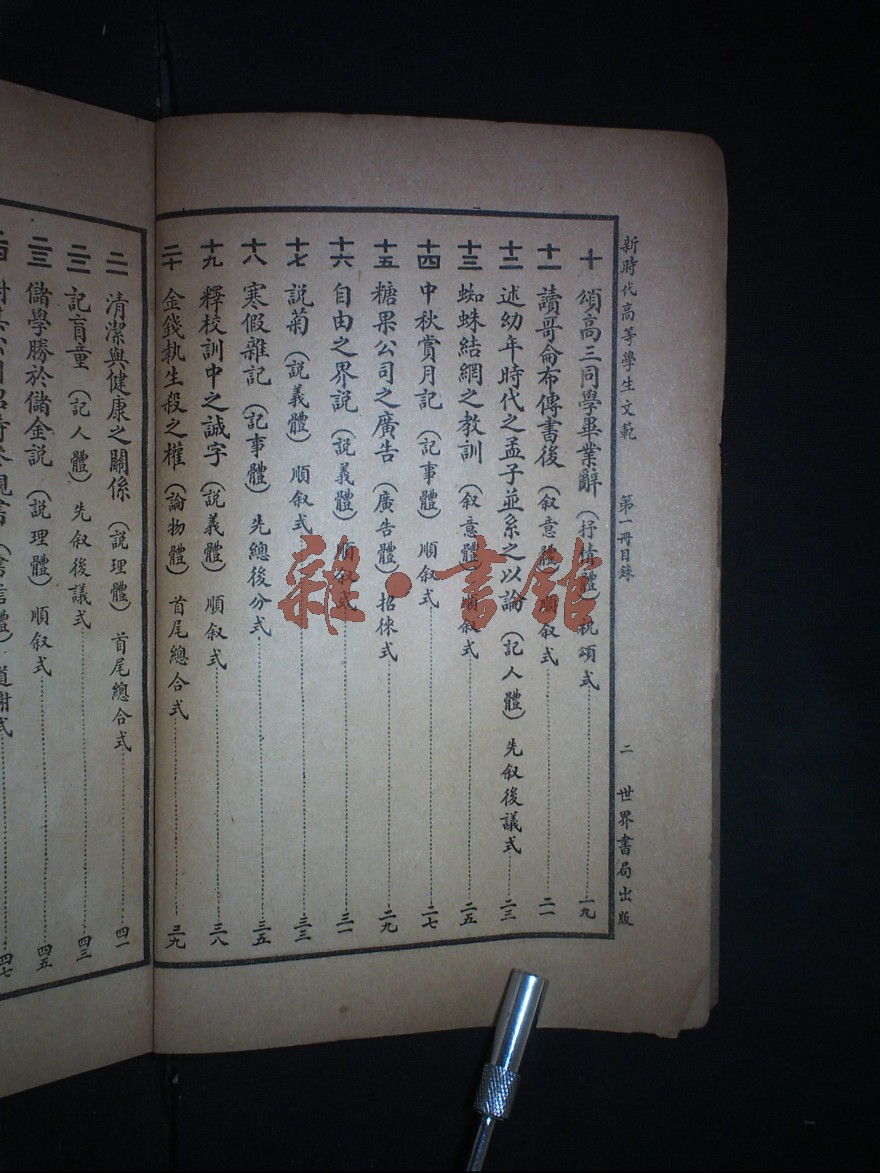 新時代高等學生文範 第一冊目錄 二 世界書局出版
十 頌高三同學畢業辭(抒情體)祝頌式 一九
十一 讀哥侖布傳書後(叙意體)順叙式 二一
十二 述幼年時代之孟子並系之以論(記人體)先叙後議式 二三
十三 蜘蛛結網之教訓(叙意體)順叙式 二五
十四 中秋賞月記(記事體)順叙式 二七
十五 糖果公司之廣告(廣告體)招徠式 二九
十六 自由之界説(説義體)順叙式 三一
十七 説菊(説義體)順叙式 三三
十八 寒假雜記(記事體)先總後分式 三五
十九 釋校訓中之誠字(説義體)順叙式 三八
二十 金錢執生殺之權(論物體)首尾總合式 三九
二一 清潔與健康之關係(説理體)首尾總合式 四一
二二 記盲童(記人體)先叙後議式 四三
二三 儲學勝於儲金説(説理體)順叙式 四五
二四 書(書信體)道謝式 四七
雜·書館